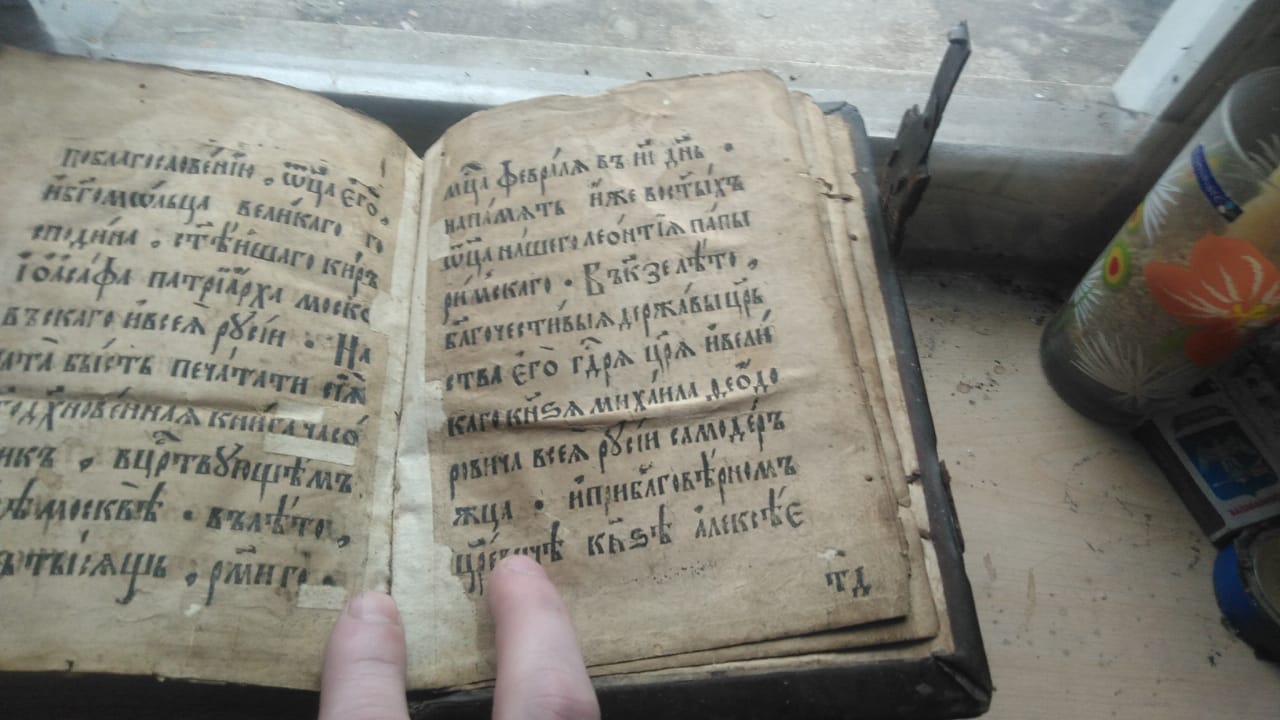 поблагословенїю . ѿца є҆го̀ ,
и҆бг҃омѡльца вели́каго го
споди́на . ст҃ѣ́йшаго ки́ръ
і҆ѡ҆аса́фа патрїа́рха моско
въскаго и҆всеа̀ рꙋсі́и . На
ча́та бы́сть печа́тати сїѧ̀
бг҃одꙋхнове́нная кни́га часо́
никъ , вцр҃твꙋющемъ
гра́дѣ москвѣ̀ . въ лѣ́то ,
з҃ ты́сѧщь , рм҃и го .
мц҃а февра́лѧ въ и҃і дн҃ь .
напа́мѧть и҆́же вост҃ы́хъ
ѿц҃а на́шего лео́нтїѧ па́пы
ри́мскаго . Въ к҃з е лѣ́то ,
бл҃гочести́выѧ держа́вы цр҃ь
ства є҆го̀ гд҃рѧ цр҃ѧ и҆вели́
каго кн҃ѕѧ михаи́ла ѳео́до
ровича всеѧ̀ рꙋсі́и самоде́р
жца . и҆прибл҃говѣ́рномъ
цр҃евичѣ кн҃ѕѣ а҆лексѣ́є
тд